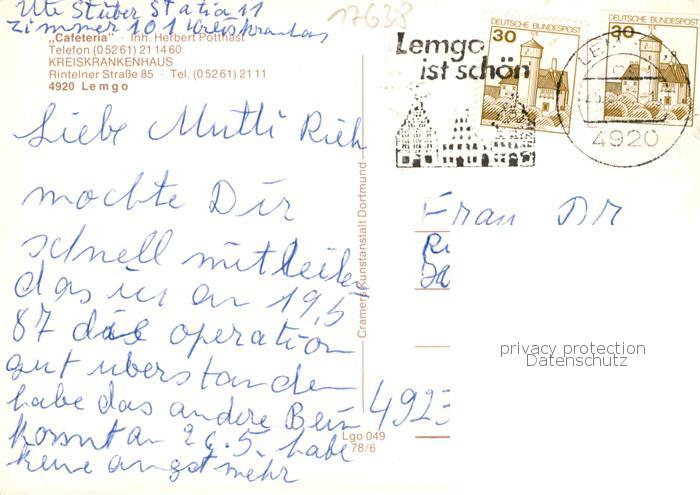 Ute Stüber Statia 11
Zimmer 101 Kreiskrankas
17638
„Cafeteria" · Inh. Herbert Potthast
Telefon (05261) 211460
KREISKRANKENHAUS
Rintelner Straße 85 · Tel. (05261) 2111
4920 Lemgo
Lemgo
ist schön
DEUTSCHE BUNDESPOST
30
DEUTSCHE BUNDESPOST
30
4920
Liebe Mutti Rich
mochte Dir
schnell mitteilen
das ich an 19,5
87 die operation
gut uberstanden
habe das andere Bein
kommt an 26.5. habe
keine angst mehr
Frau Dr
4923
Cramers Kunstanstalt Dortmund
Lgo 049
78/6
privacy protection
Datenschutz